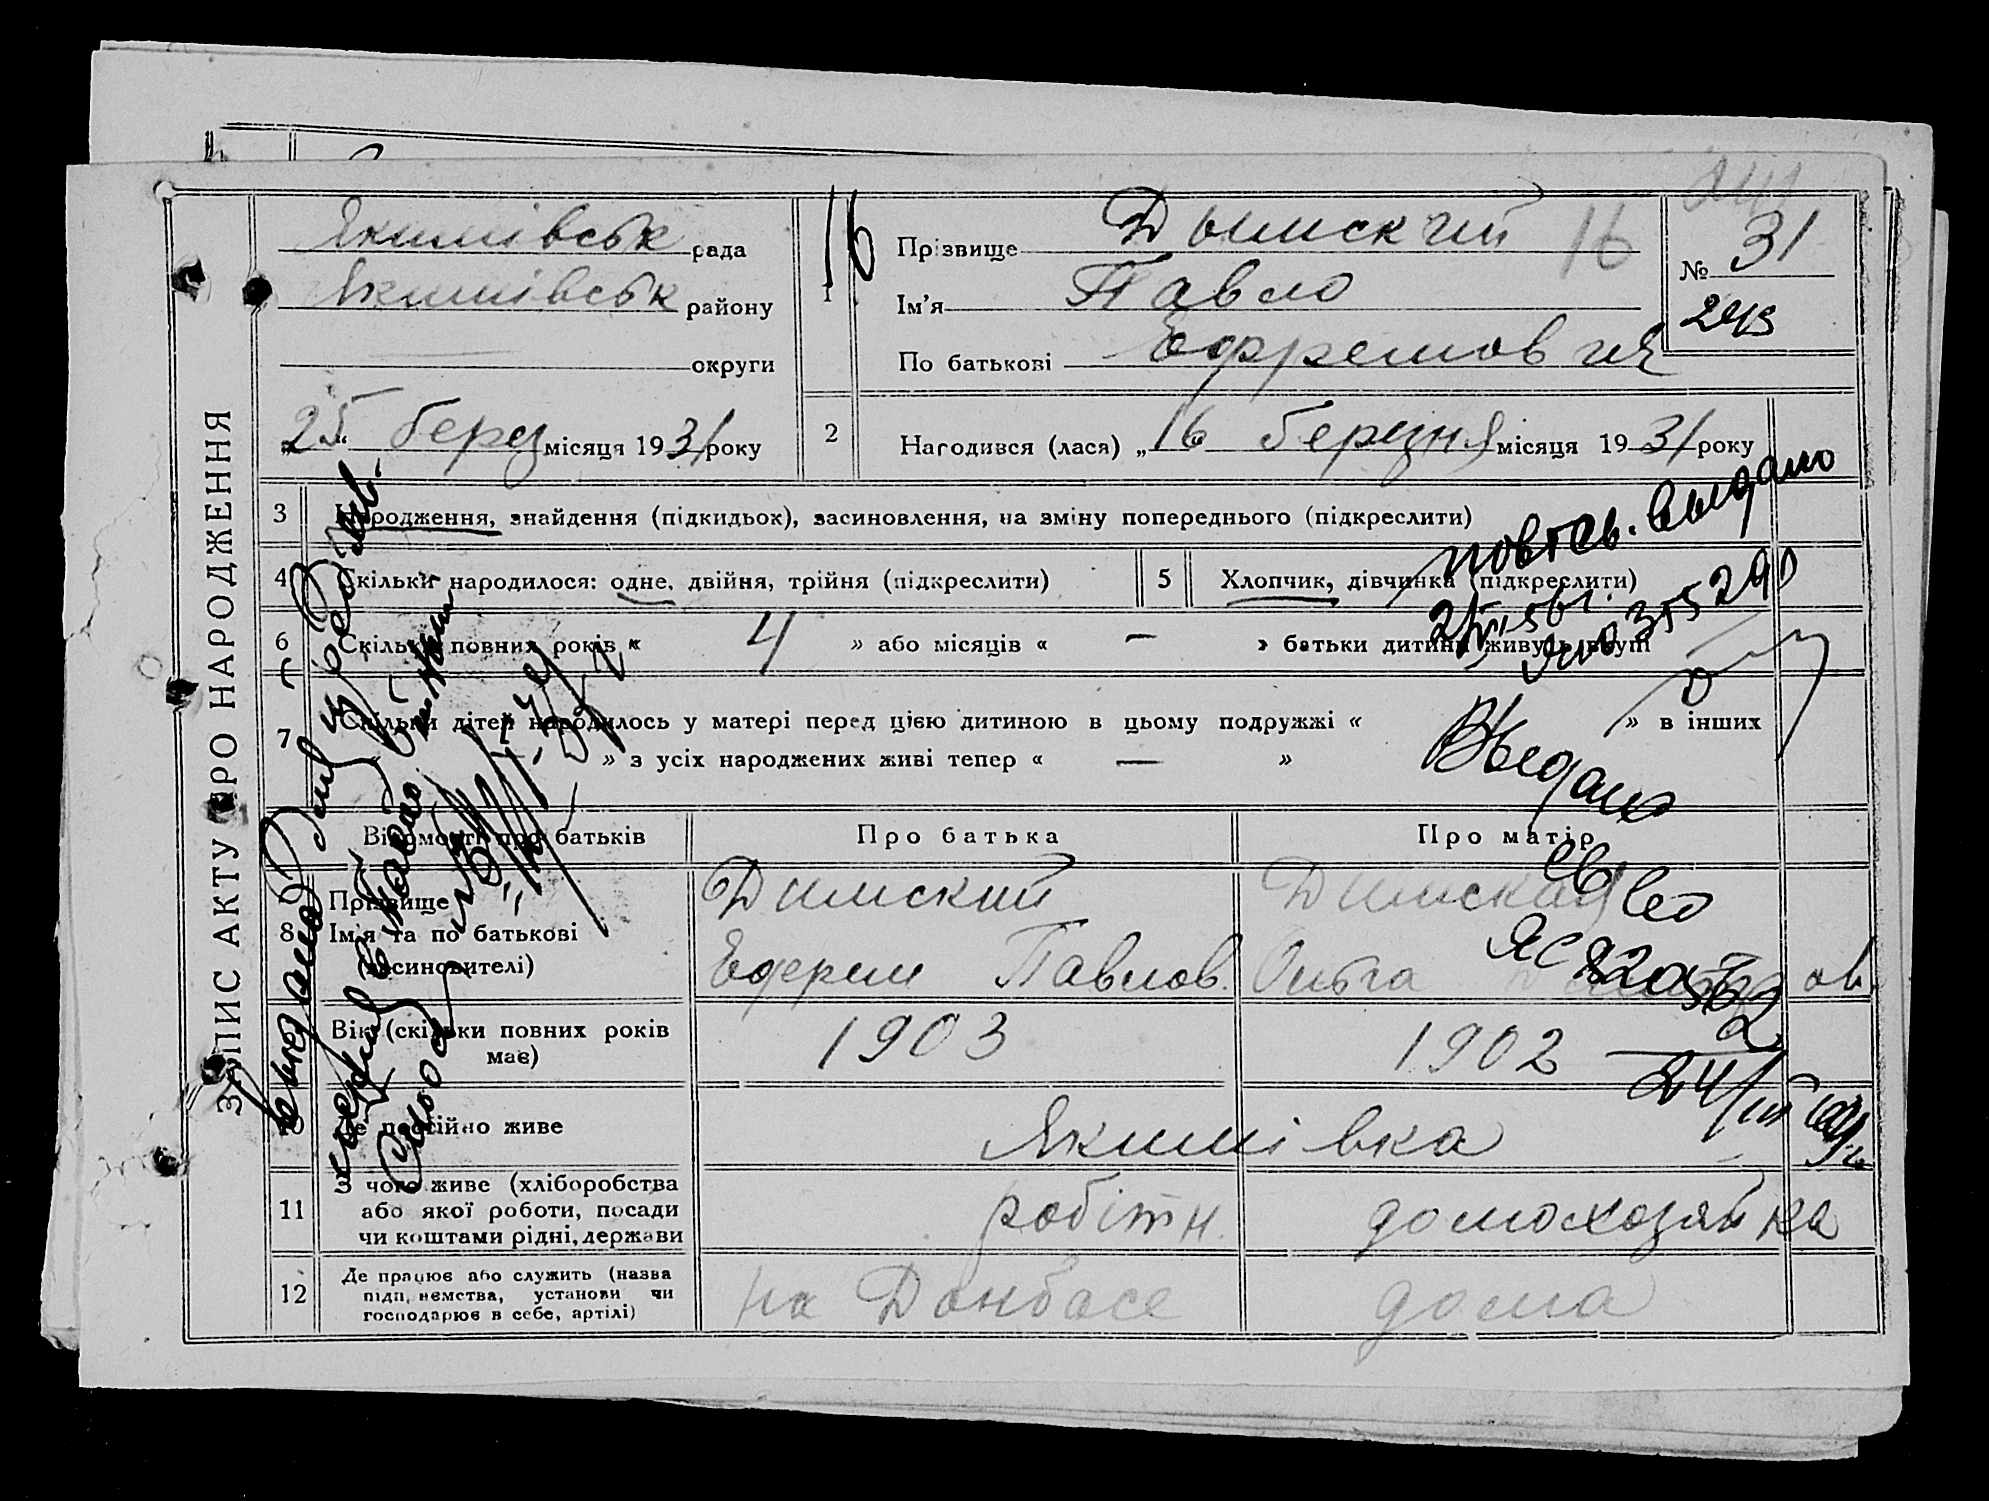 ЗАПИС АКТУ ПРО НАРОДЖЕННЯ
Якимівськ рада
Якимівськ району
округи
„25“ берез місяця 1931 року
16
1
Прізвище Дымский 16
Ім'я Павло
По батькові Ефремович
№ 31
243
2 Народився (лася) „16 березня місяця 1931 року
3 Народження, знайдення (підкидьок), засиновлення, на зміну попереднього (підкреслити)
4 Скільки народилося: одне, двійня, трійня (підкреслити)
5 Хлопчик, дівчинка (підкреслити)
6 Скільки повних років « 4 » або місяців « — » батьки дитини живуть вкупі
7 Скільки дітей народилось у матері перед цією дитиною в цьому подружжі « » в інших
« — » з усіх народжених живі тепер « — »
Відомості про батьків Про батька Про матір
8 Прізвище
Ім'я та по батькові
(засиновителі)
Димский Димская
Ефрем Павлов. Ольга
Вік (скільки повних років має) 1903 1902
10 Де постійно живе Якимівка
11 З чого живе (хліборобства або якої роботи, посади чи коштами рідні, держави
робітн. домохозяйка
12 Де працює або служить (назва підприємства, установи чи господарює в себе, артілі)
на Донбасе дома
повт св. выдано
Выдано
св во